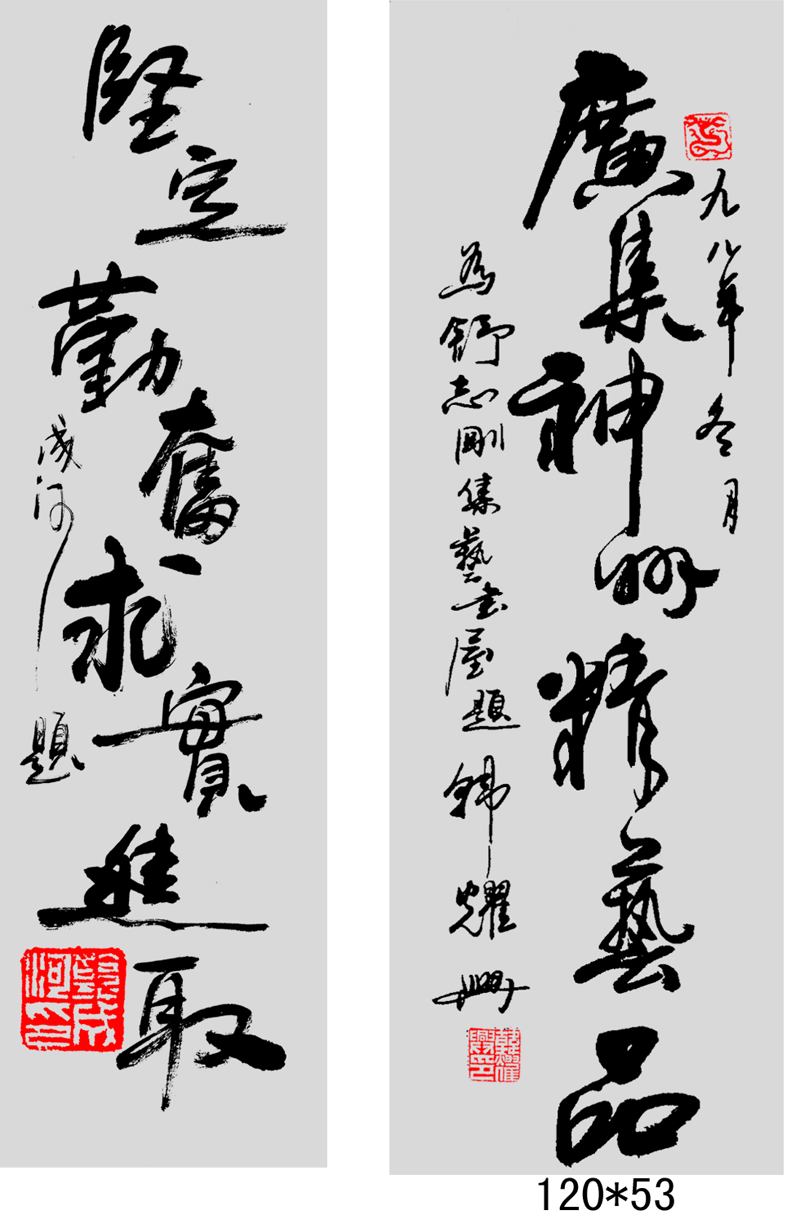 九八年冬月
廣集神州精藝品
為舒志剛集藝書屋題 韓耀興
堅定勤奮求實進取
成河 題
120*53